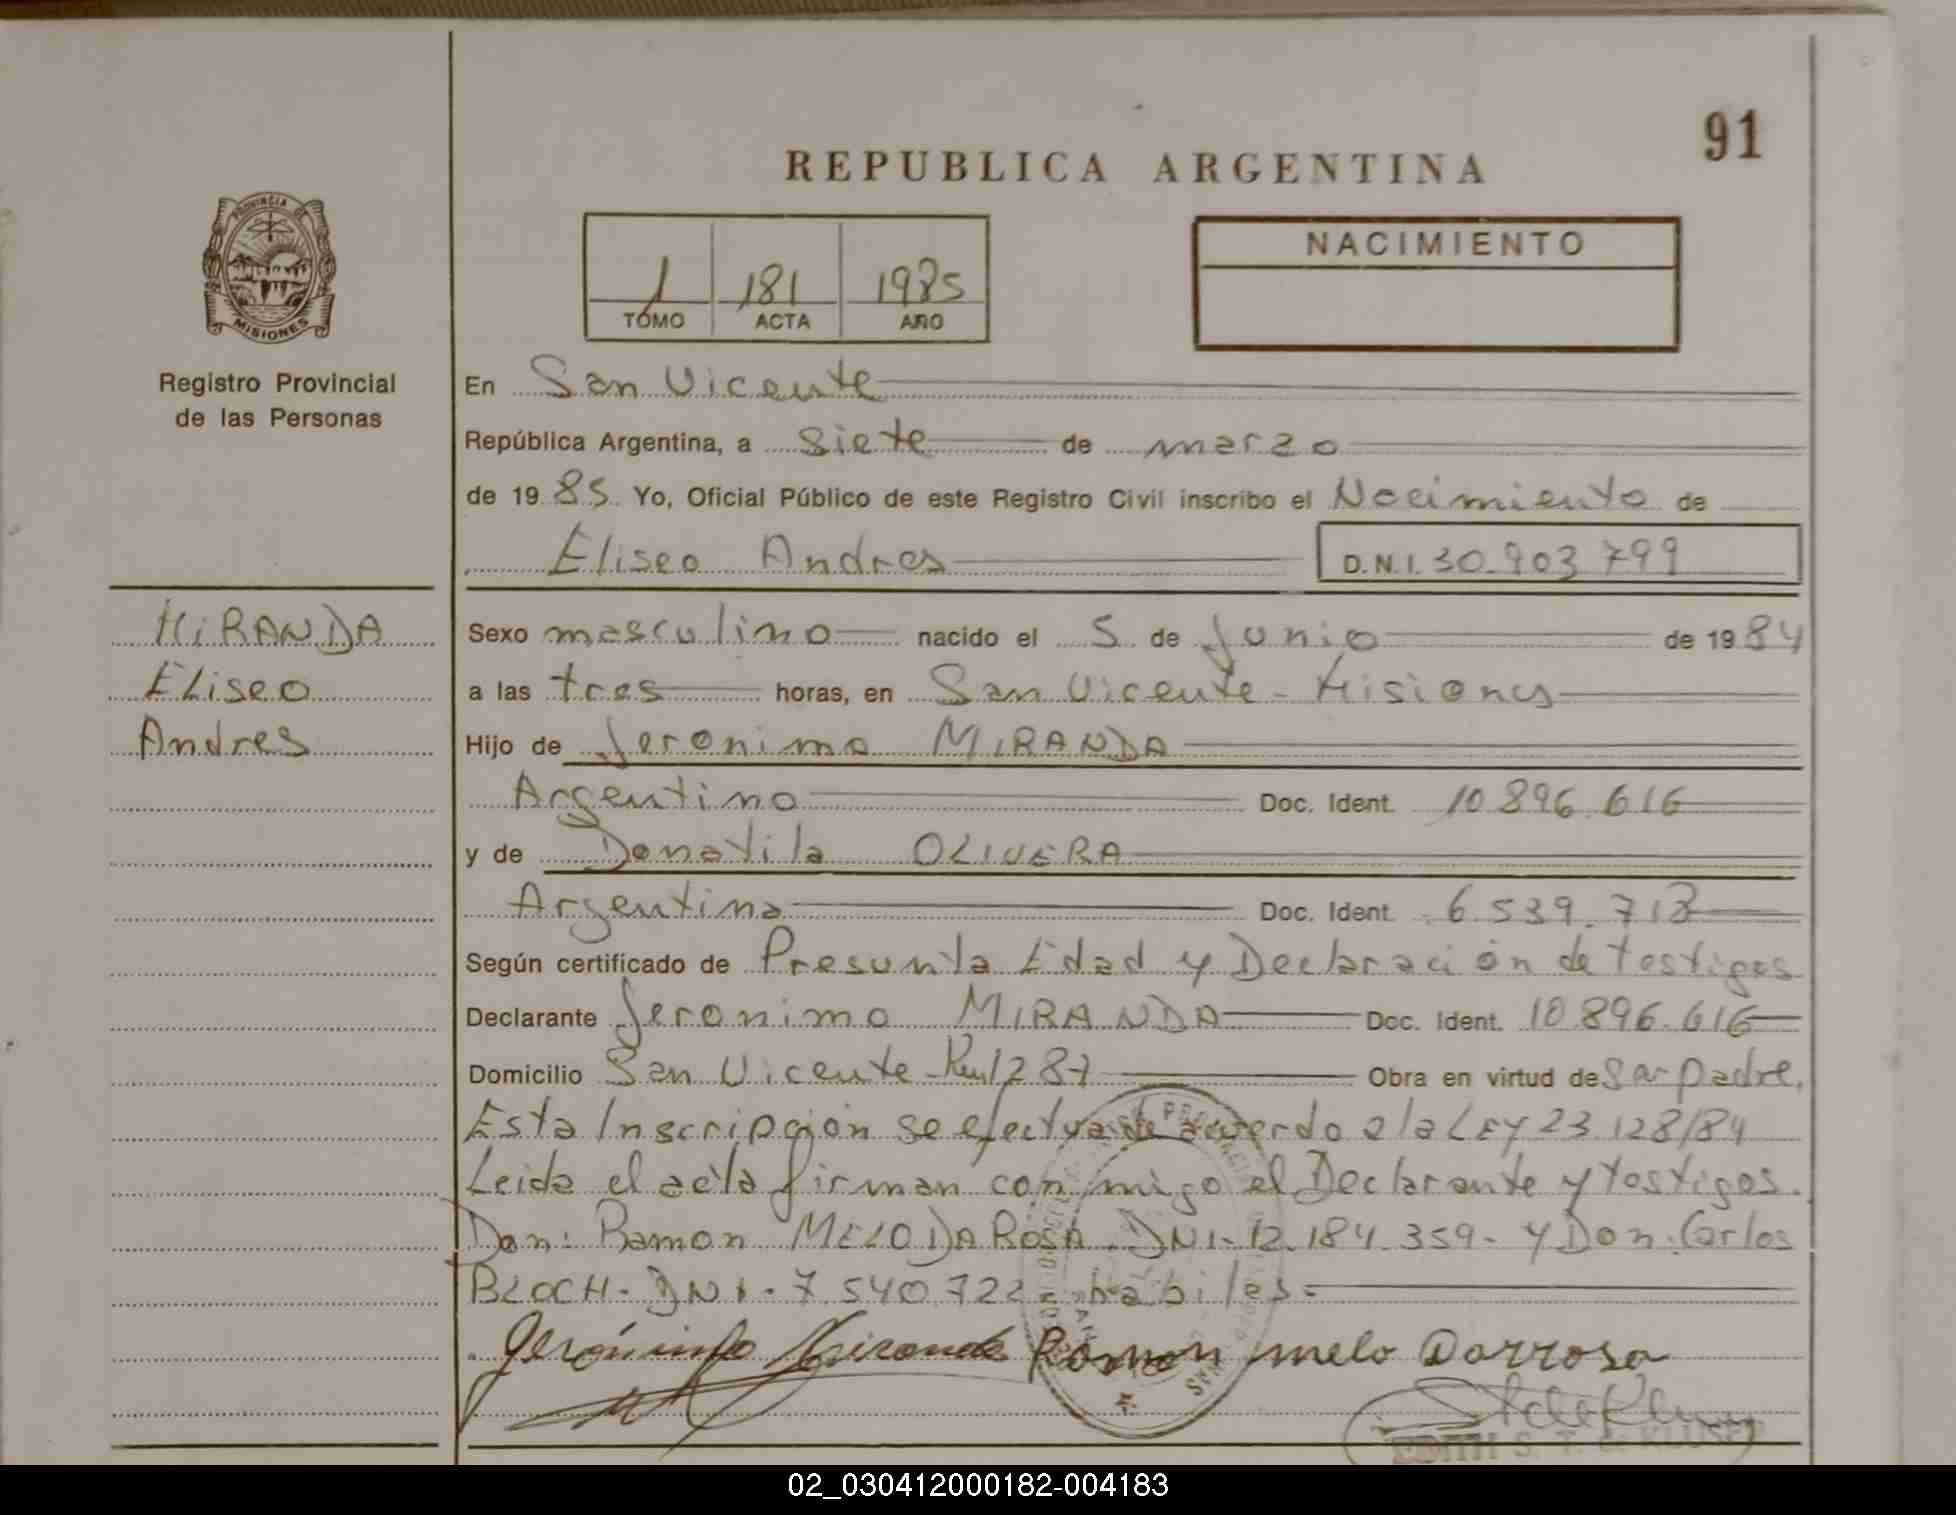 91
REPUBLICA ARGENTINA
PROVINCIA DE
MISIONES
Registro Provincial
de las Personas
1 181 1985
TOMO ACTA AÑO
NACIMIENTO
En San Vicente
República Argentina, a siete de marzo
de 19 85 Yo, Oficial Público de este Registro Civil inscribo el Nacimiento de
Eliseo Andres D.N.I. 30.903.799
MIRANDA
Eliseo
Andres
Sexo masculino nacido el 5 de Junio de 19 84
a las tres horas, en San Vicente - Misiones
Hijo de Jeronimo MIRANDA
Argentino Doc. Ident. 10.896.616
y de Donatila OLIVERA
Argentina Doc. Ident. 6.539.718
Según certificado de Presunta Edad y Declaración de testigos
Declarante Jeronimo MIRANDA Doc. Ident. 10.896.616
Domicilio San Vicente - Km 1287 Obra en virtud de Ser padre.
Esta Inscripción se efectua de acuerdo a la LEY 23.128/84
Leida el acta firman conmigo el Declarante y testigos.
Don: Ramon MELO DA ROSA. DNI- 12.184.359- y Don: Carlos
BLOCH- DNI- 7.540.722- habiles-
Gerónimo Miranda Ramon melo Darrosa
EDITH S. T. de KLUSEN
02_030412000182-004183